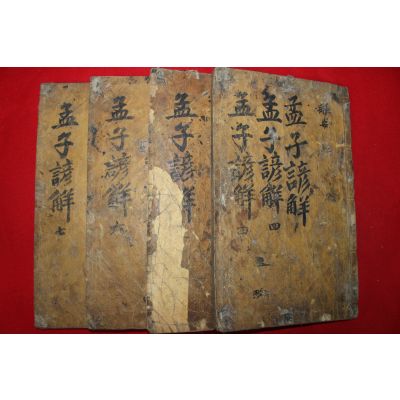 孟子諺解
四
孟子諺解
四
孟子諺解
孟子諺解
六
孟子諺解
七